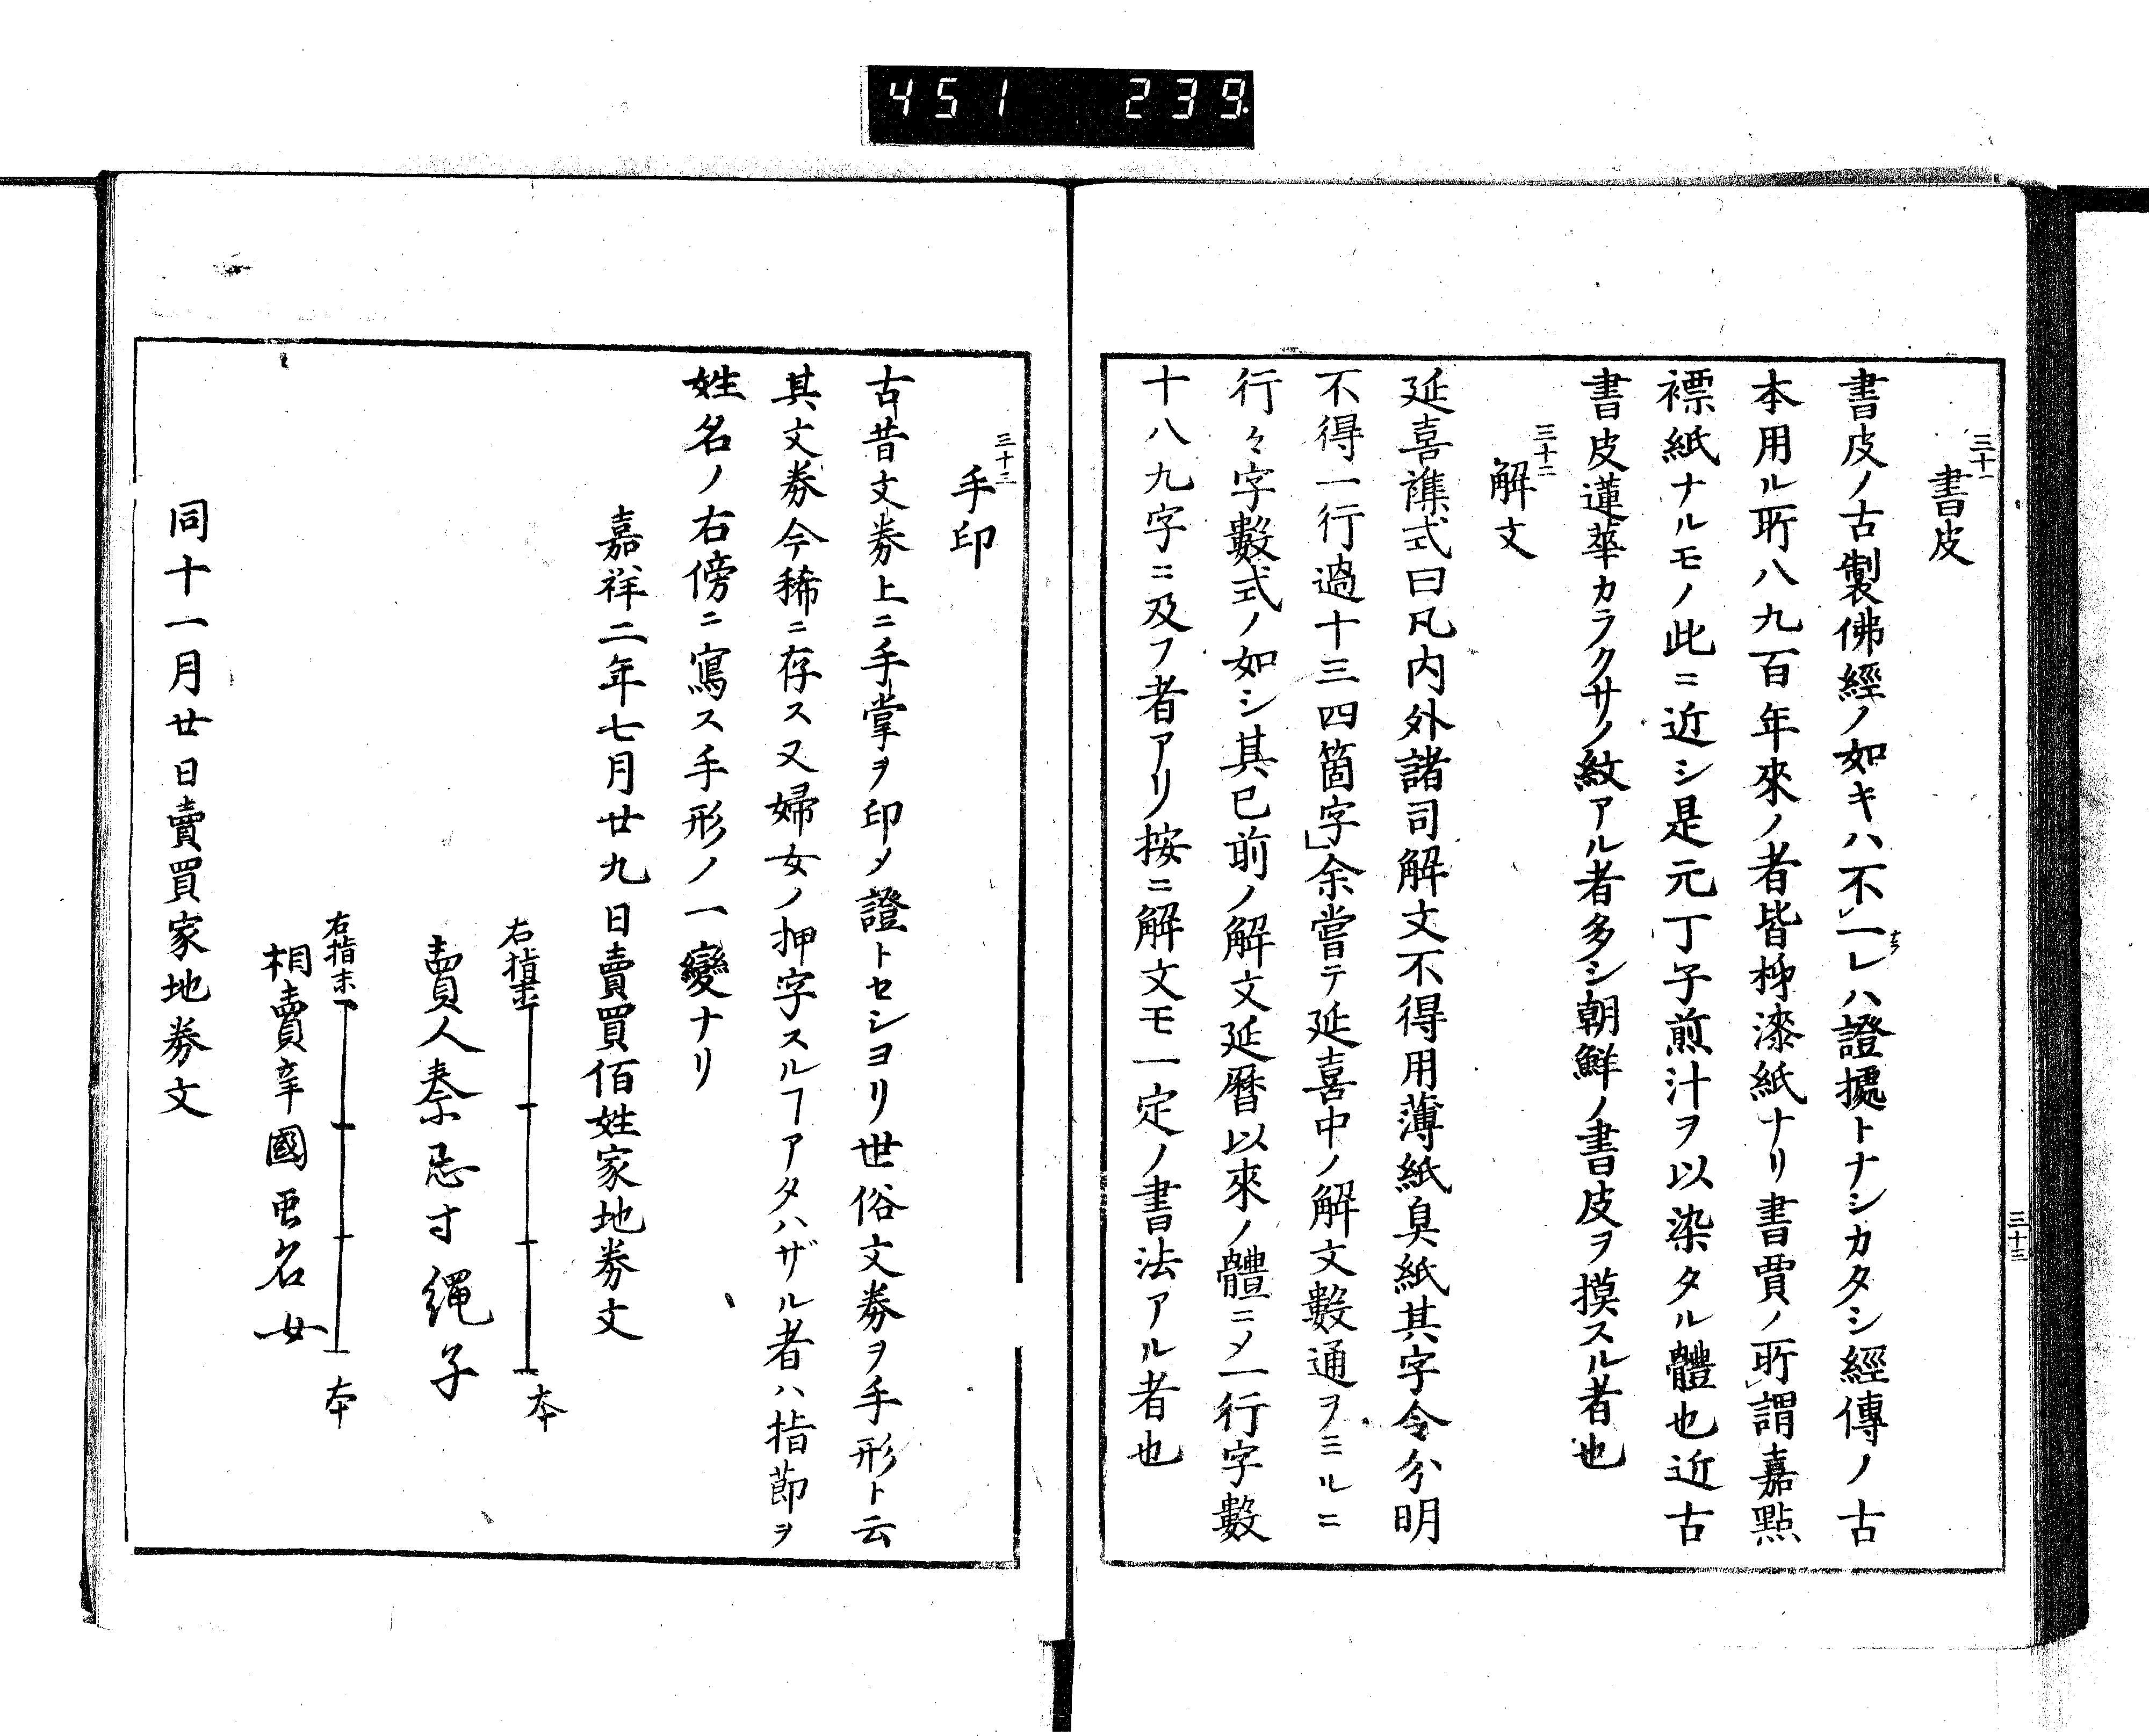 451 239
三十一
書皮
書皮ノ古製佛經ノ如キハ不」一レハ證據トナシカタシ經傳ノ古
本用ル所八九百年來ノ者皆柹漆紙ナリ書賈ノ所」謂嘉點
褾紙ナルモノ此ニ近シ是元丁子煎汁ヲ以染タル體也近古
書皮蓮華カラクサノ紋アル者多シ朝鮮ノ書皮ヲ摸スル者也
三十二
解文
延喜雜式曰凡内外諸司解文不得用薄紙臭紙其字令分明
不得一行過十三四箇字」余嘗テ延喜中ノ解文數通ヲミルニ
行々字數式ノ如シ其已前ノ解文延暦以來ノ體ニメ一行字數
十八九字ニ及フ者アリ按ニ解文モ一定ノ書法アル者也
三十三
三十三
手印
古昔文券上ニ手掌ヲ印メ證トセシヨリ世俗文券ヲ手形ト云
其文券今稀ニ存ス又婦女ノ押字スルヿアタハザル者ハ指節ヲ
姓名ノ右傍ニ寫ス手形ノ一變ナリ
嘉祥二年七月廿九日賣買佰姓家地券文
右指末 本
賣人秦忌寸縄子
右指末 本
相賣辛國 名女
同十一月廿日賣買家地券文